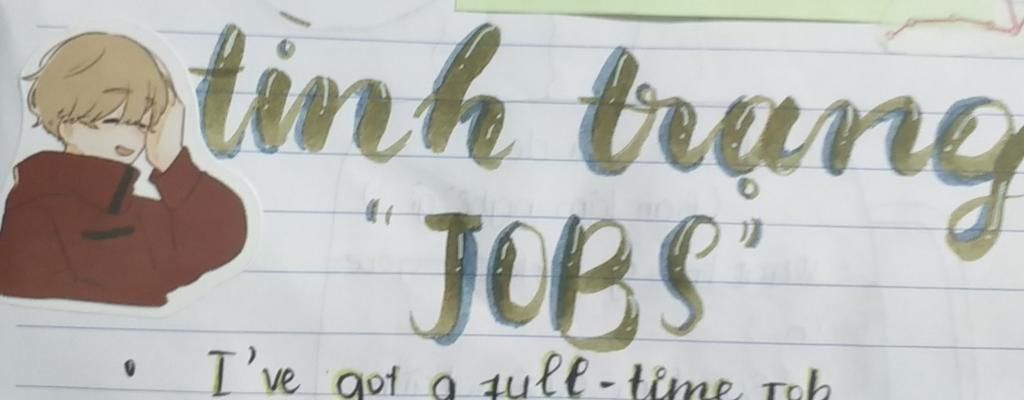 tình trạng
"JOBS"
• I've got a full-time job